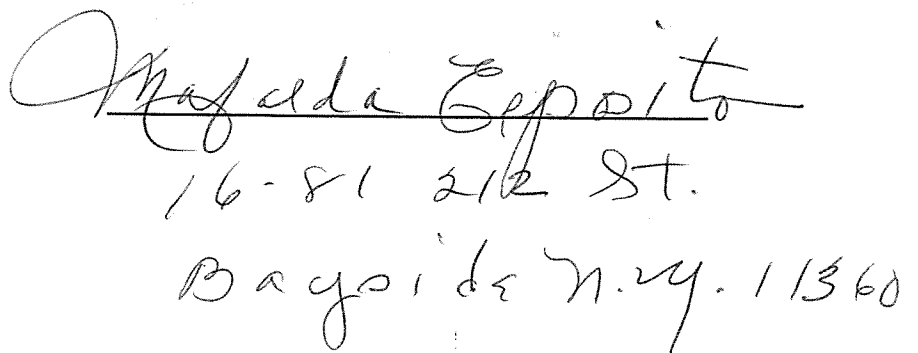 Mafalda Esposito
16-81 212 St.
Bayside N.Y. 11360